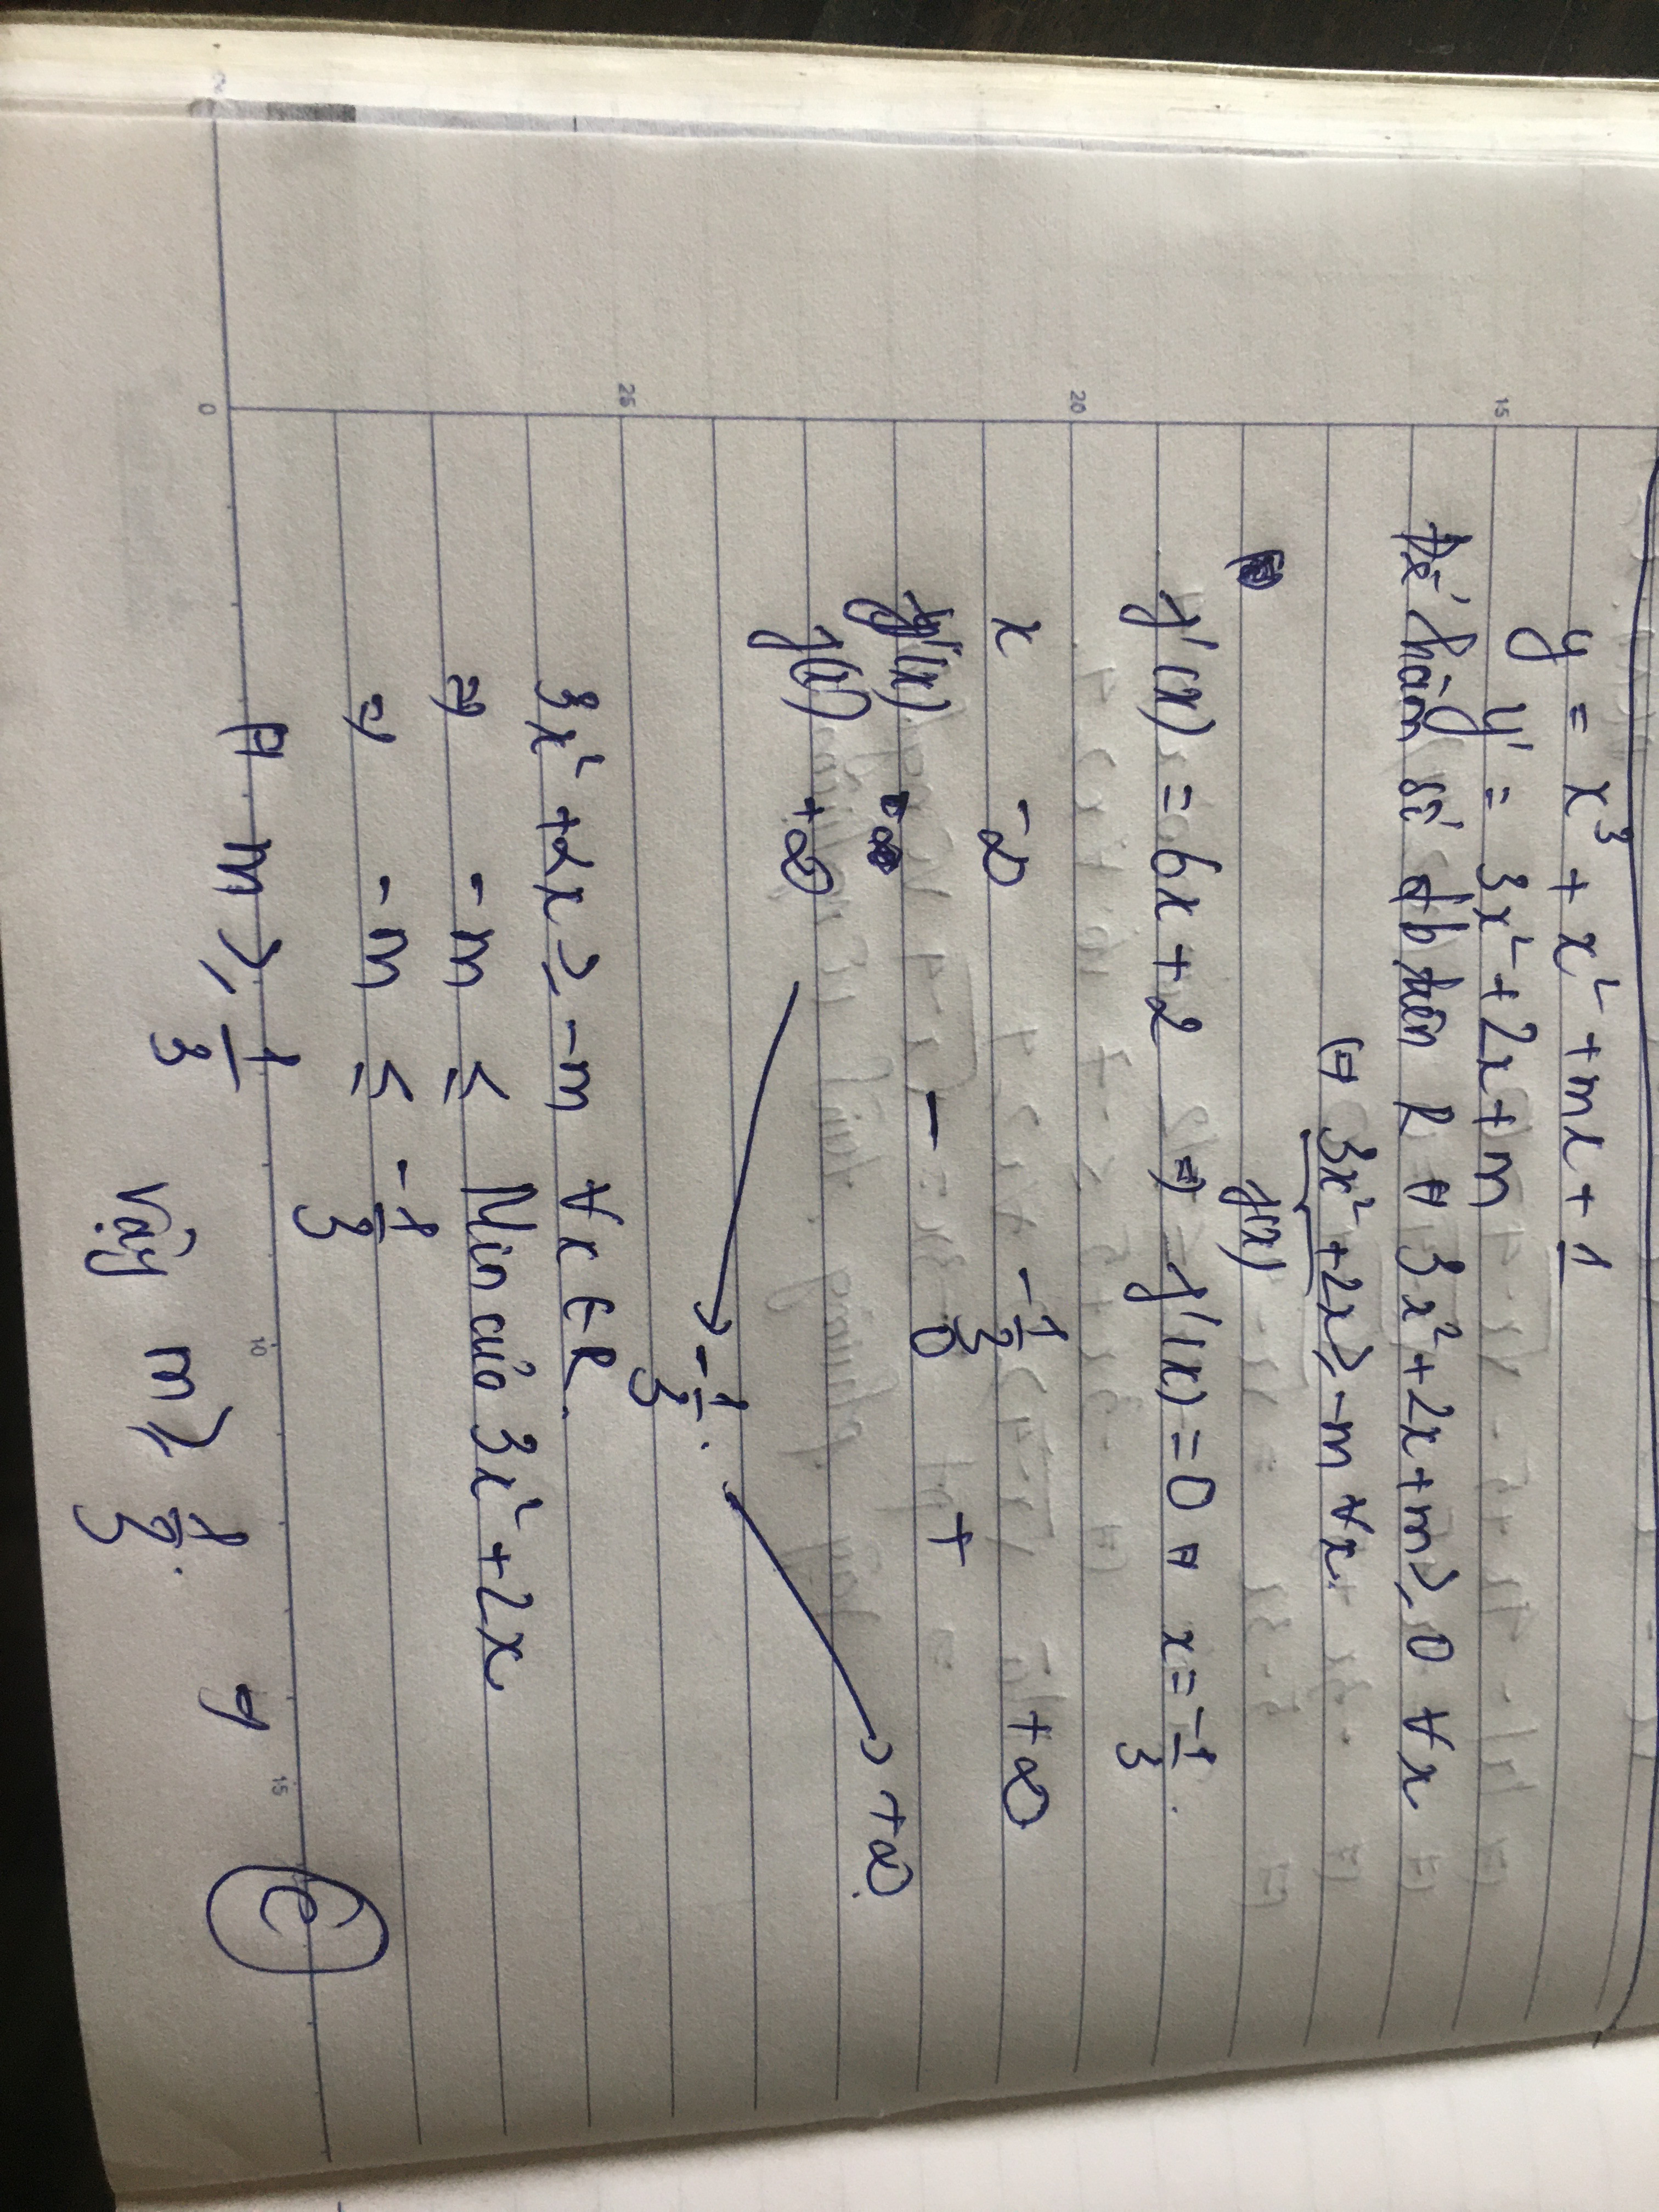 y = x³ + x² + mx + 1
y' = 3x² + 2x + m
Để hàm số đb trên R ⇔ 3x² + 2x + m ≥ 0 ∀x
⇔ 3x² + 2x ≥ -m ∀x
f(x)
f'(x) = 6x + 2 ⇒ f'(x) = 0 ⇔ x = -1/3.
x -∞ -1/3 +∞
f'(x) - 0 +
f(x) +∞ -1/3. +∞
3x² + 2x ≥ -m ∀x ∈ R.
⇒ -m ≤ Min của 3x² + 2x
⇒ -m ≤ -1/3
⇔ m ≥ 1/3
Vậy m ≥ 1/3.
y
C
15
20
25
0
10
15